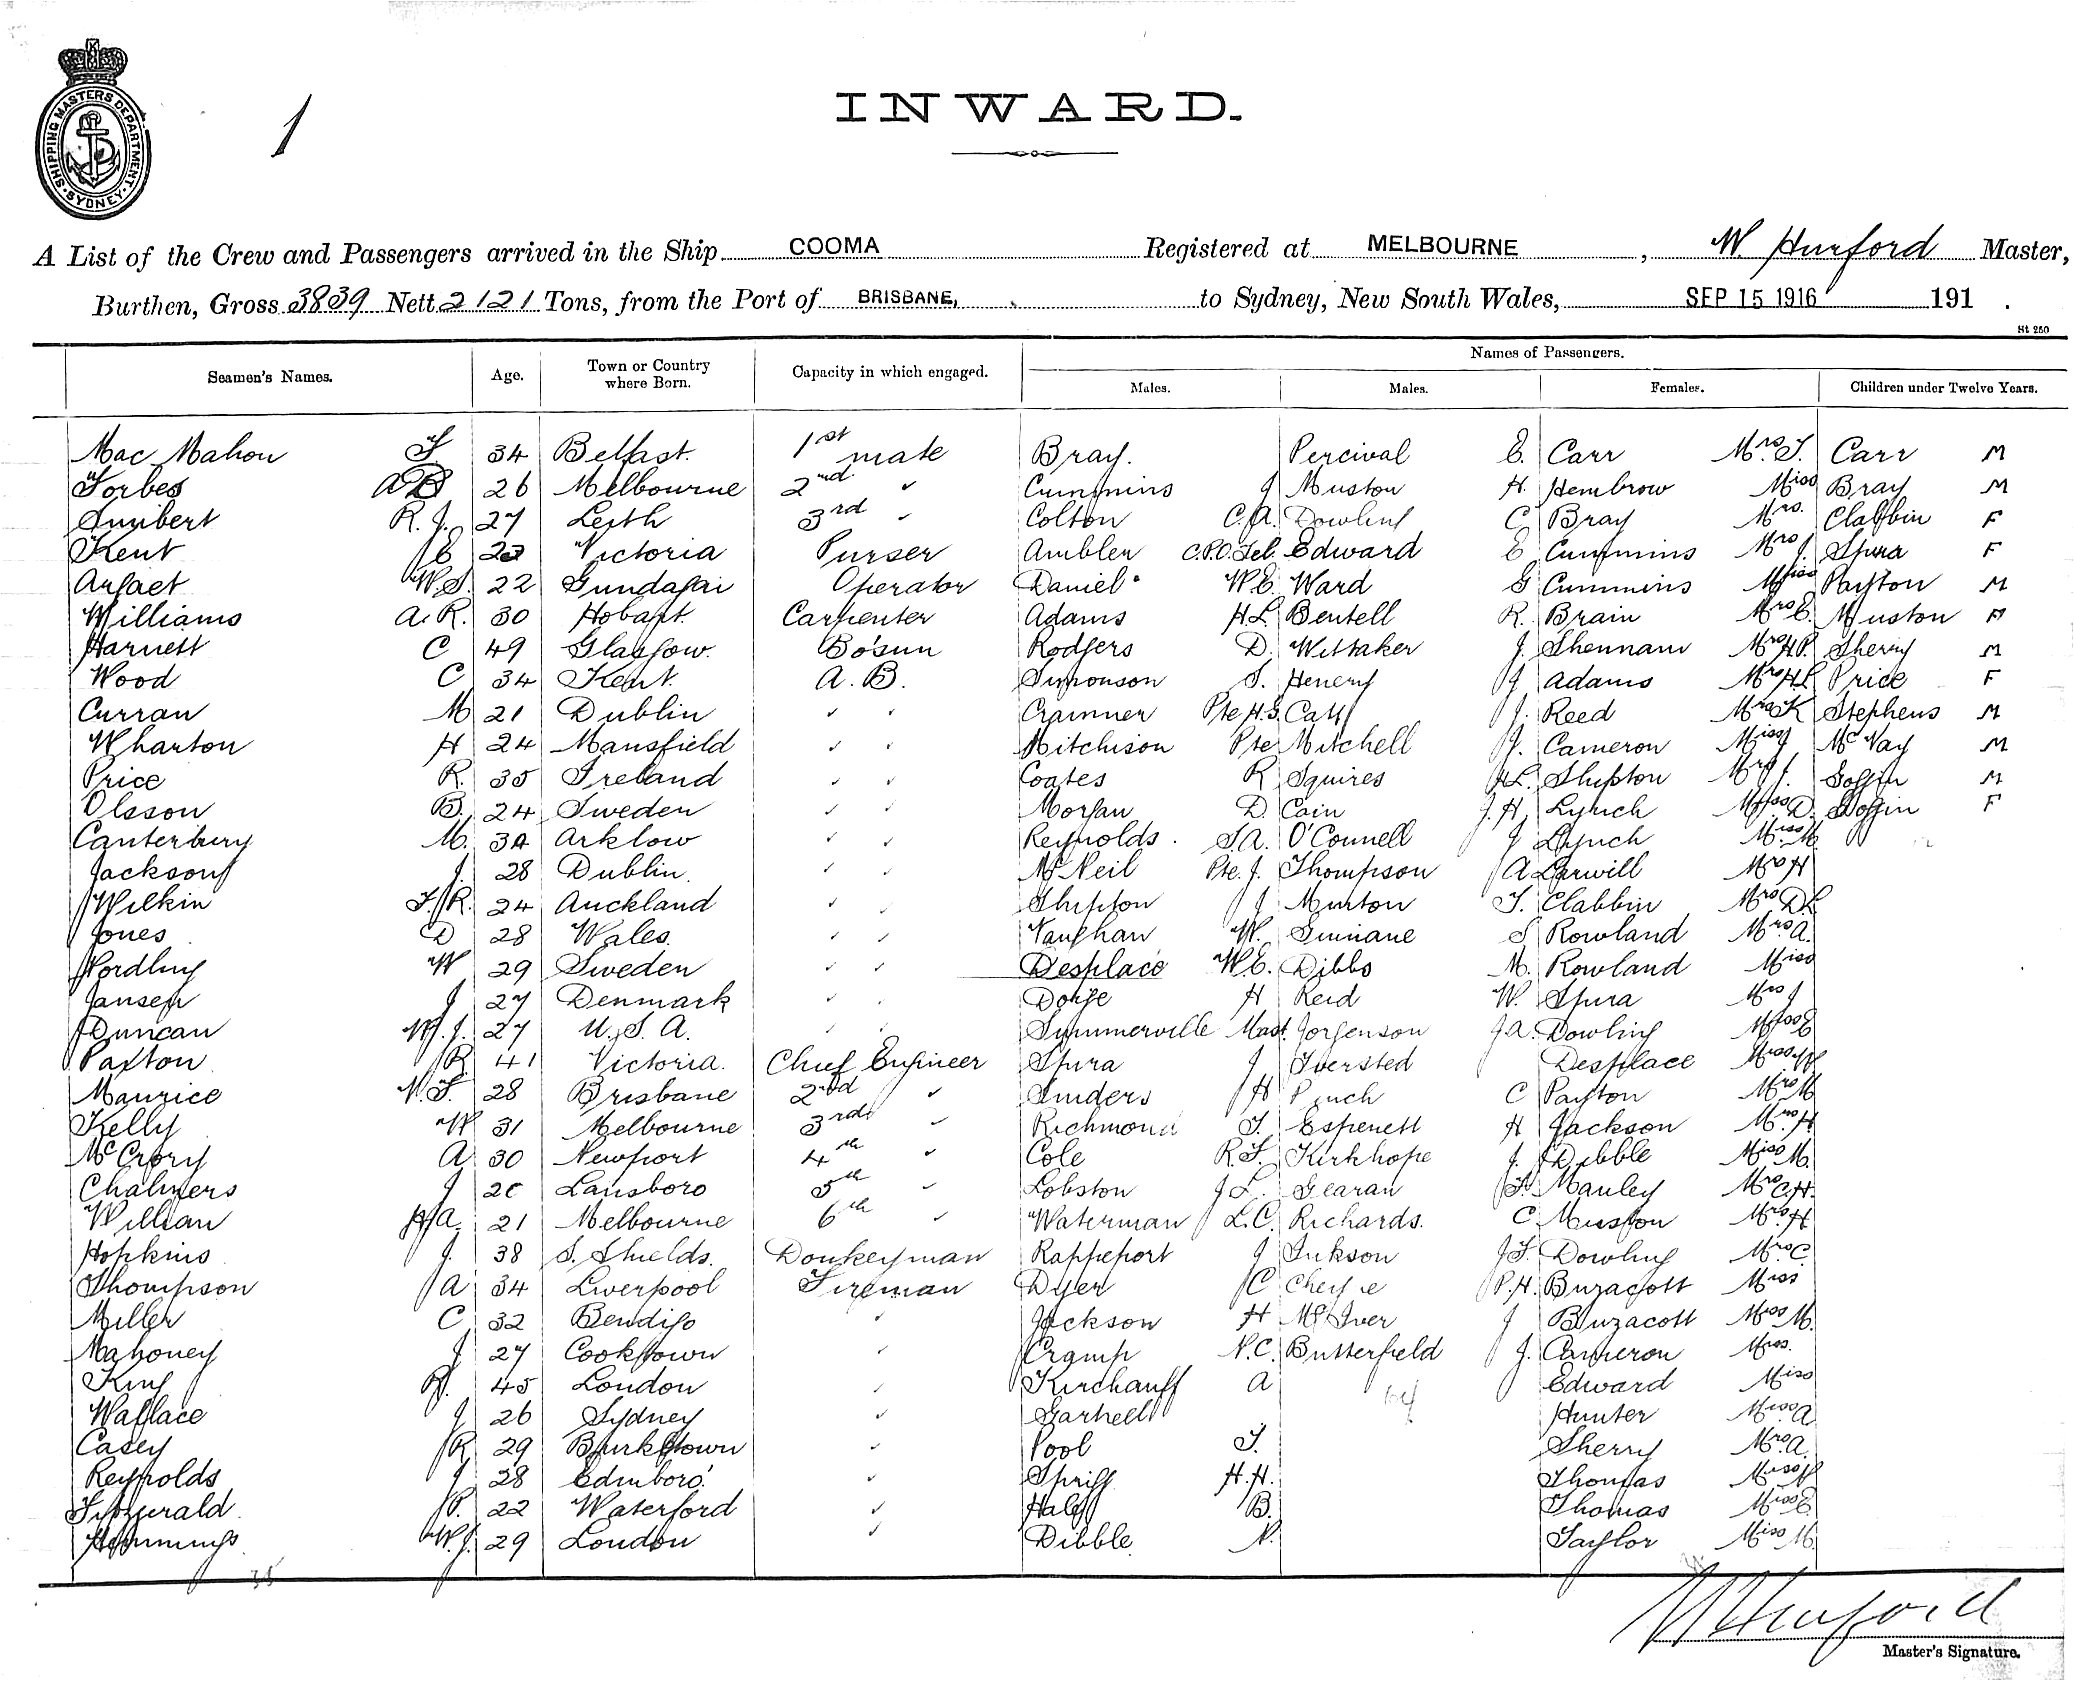 SHIPPING MASTERS DEPARTMENT. SYDNEY
1
INWARD.
A List of the Crew and Passengers arrived in the Ship COOMA Registered at MELBOURNE, W. Hurford Master,
Burthen, Gross 3839 Nett 2121 Tons, from the Port of BRISBANE, to Sydney, New South Wales, SEP 15 1916 191 .
St 250
Names of Passengers.
Seamen's Names. Age. Town or Country where Born. Capacity in which engaged. Males. Males. Females. Children under Twelve Years.
Mac Mahon F. 34 Belfast. 1st mate Bray. Percival E. Carr Mrs J. Carr M
Forbes 26 Melbourne 2nd " Cummins J Muston H. Hembrow Miss Bray M
R. J. 27 Leith 3rd " Colton C.A. Dowling C Bray Mrs. Clabbin F
Kent E Victoria Purser Ambler C.P.O. Tel. Edward E Cummins Mrs J. Spura F
W.S. 22 Gundagai Operator Daniel W.E. Ward G Cummins Miss Payton M
Williams A. R. 30 Hobart. Carpenter Adams H.L. Bentell R. Brain Mrs E. Muston
Harnett C 49 Glasgow. Bo'sun Rodgers D. Wittaker J. Shennam Mrs H.P. Sherry M
Wood C 34 Kent. A. B. Simonson S. Henery J Adams Mrs H.L. Price F
Curran M 21 Dublin " " Cramner Pte H.G. J. Reed Mrs K Stephens M
Wharton H 24 Mansfield " " Hitchison Pte Mitchell J. Cameron Miss J McVay M
Price R. 35 Ireland " " Coates R Squires H.L. Shipton Mrs J. Goggin M
Olsson B. 24 Sweden " " Morgan D. Cain J. H. Lynch Miss D. Goggin F
Canterbury M. 34 Arklow " " Reynolds. S.A. O'Connell J Lynch Miss M.
Jackson J. 28 Dublin. " " McNeil Pte. J. Thompson A Larwill Mrs H
Wilkin F. R. 24 Auckland " " Shipton J Murton T. Clabbin Mrs D.L
Jones D 28 Wales. " " Vaughan W. Guinane S Rowland Mrs A.
Nordling W 29 Sweden " " Desplace W.E. Dibbs M. Rowland Miss
Jansen J 27 Denmark " " Dodge H Reid W. Spura Mrs J
Duncan W. J. 27 U. S. A. " " Summerville Mast. Jorgenson J.A. Dowling Miss E
Paxton R 41 Victoria. Chief Engineer Spura J Iversted Desplace Miss
Maurice W. F. 28 Brisbane 2nd " Sinders H C Payton Mrs M
Kelly W 31 Melbourne 3rd " Richmond T. Espenett H Jackson Mrs. H
McCrory A 30 Newport 4th " Cole R.F. Kirkhope J. Dibble Miss M.
Chalmers J Lansboro 5th " Lobston J L. Gearan Manley Mrs C.H.
Willian H A. 21 Melbourne 6th " Waterman L.C. Richards. C Muston Mrs. H
Hopkins J. 38 S. Shields. Donkeyman Rappeport J Inkson J.F. Dowling Mrs C.
Thompson A 34 Liverpool Fireman Dyer C P.H. Buzacott Miss
Miller C 32 Bendigo " Jackson H McIver J Buzacott Miss M.
Mahoney J 27 Cooktown " Cramp N.C. Butterfield J. Cameron Miss.
King R. 45 London " Kirchauff A Edward Miss
Wallace J 26 Sydney " Garnett Hunter Miss A
Casey R 29 Burketown " Pool T. Sherry Mrs. A.
Reynolds J 28 Edinboro' " Sprigg H.H. Thomas Miss
Fitzgerald P. 22 Waterford " Haly B. Thomas Miss E
Hemmings W.J. 29 London " Dibble N. Taylor Miss M.
35
W Hurford
Master's Signature.